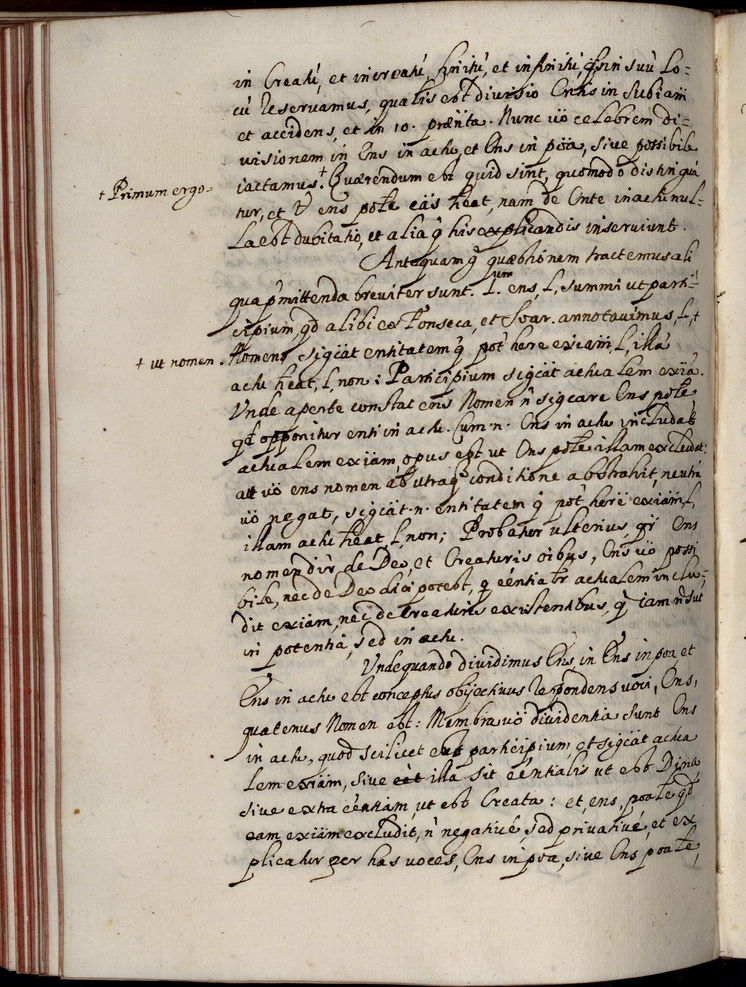 in Creatũ, et increatũ, finitũ, et infinitũ, in suũ lo-
cũ reservamus, qualis est divisio Entis in subiam
et accidens, et in 10. prænta. Nunc uö celebrem di-
visionem in Ens in actu, et Ens in pöa, sive possibile
iactamus.+ Quærendum est quid sint, quomodo distingua
+ Primum ergo-
tur, et ens poťe eäs heat, nam de Ente in actu nul-
la est dubitatio, et alia q̃ his explicandis inserviunt.
Antequam q̃ quæstionem tractemus ali
qua p̃mittenda breviter sunt. 1.um ens, l, summi ut parti-
cipium, qd alibi ex Fonseca, et Soar. annotavimus, l, +
+ ut nomen.
Nomens sigcät entitatem q̃ pot' here exiäm, l, illa
actu heat, l, non: Participium sigcät actualem exiä.
Unde aperte constat ens Nomen ñ sigcare Ens poťe
qd opponitur enti in actu. Cum .n. Ens in actu includat
actualem exiäm, opus est ut Ens poťe illam excludat:
att uö ens nomen ab utraq conditione abstrahit, neutrã
uö negat, sigcät .n. entitatem q̃ pot' here exiäm, l,
illam actu heat, l, non; Probatur ulterius, qr Ens
nomen dir de Deo, et Creaturis oibus, Ens uö possi
bile, nec de Deo dici potest, q̃ eentiatr actualem inclu-
dit exiäm, nec de Creaturis existentibus, q̃ iam ñ sut
in potentia, sed in actu.
Unde quando dividimus Ens in Ens in pöa et
Ens in actu est conceptus obiectivus respondens voci, Ens,
quatenus Nomen est: Membra uö dividentia sunt Ens
in actu, quod scilicet est participium, et sigcät actua
lem exiäm, sive illa sit eentialis ut est Divina
sive extra eentiam, ut est Creata: et, ens, poäle qd
eam exiäm excludit, ñ negativé, sed privativé, et ex
plicatur per has voces, Ens in pöa, sive Ens poäle,